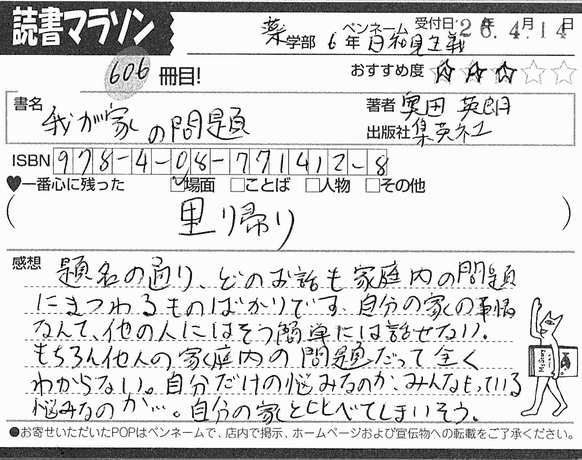 読書マラソン
薬学部 6年 ペンネーム 日和見主義 受付日 '26年4月14日
606冊目!
おすすめ度 ★★★☆☆
書名 我が家の問題
著者 奥田 英朗
出版社 集英社
ISBN 978-4-08-771412-8
♥一番心に残った ☑場面 □ことば □人物 □その他
(里り帰り)
感想
題名の通り、どのお話も家庭内の問題
にまつわるものばかりです。自分の家の事情
なんて、他の人にはそう簡単には話せない。
もちろん他人の家庭内の問題だって全く
わからない。自分だけの悩みなのか、みんなもっている
悩みなのか…。自分の家と比べてしまいそう。
●お寄せいただいたPOPはペンネームで、店内で掲示、ホームページおよび宣伝物への転載をご了承ください。